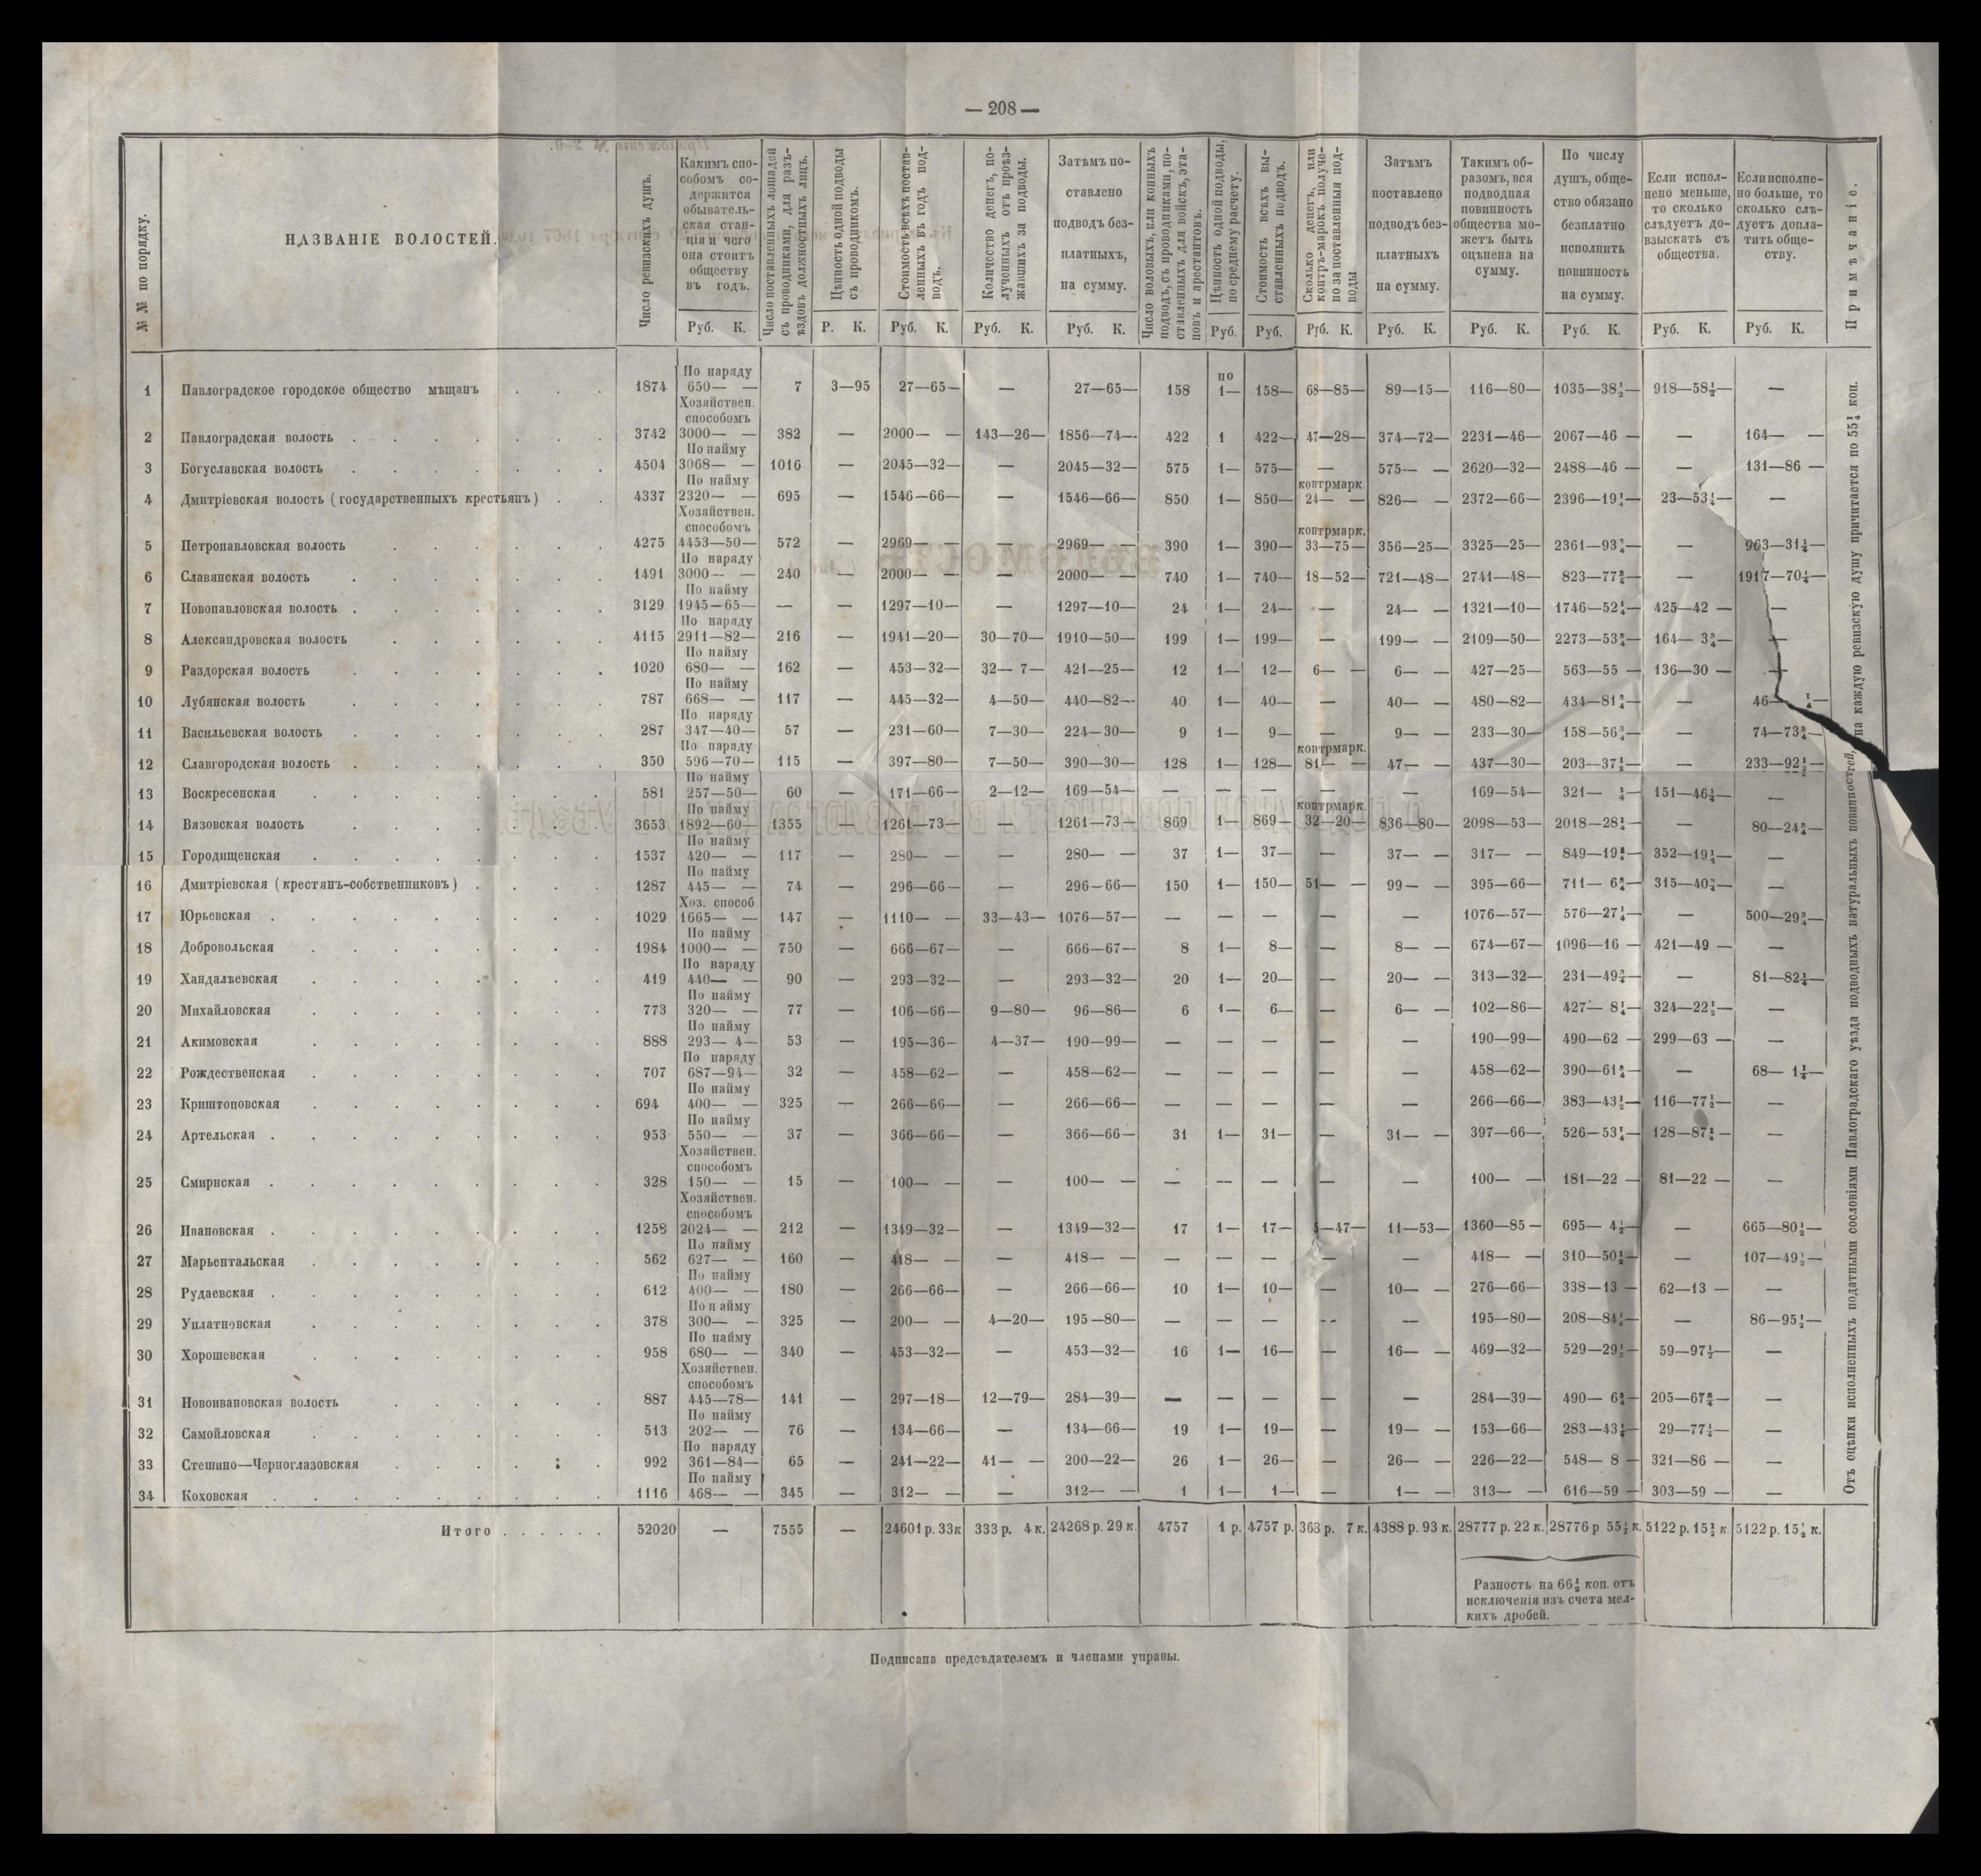 — 208 —
№№ по порядку.
НАЗВАНІЕ ВОЛОСТЕЙ.
Число ревизскихъ душъ.
Какимъ спо-
собомъ со-
держится
обыватель-
ская стан-
ція и чего
она стоитъ
обществу
въ годъ.
Руб. К.
Число поставленныхъ лошадей
съ проводниками, для разъ-
ѣздовъ должностныхъ лицъ.
Цѣнность одной подводы
съ проводникомъ.
Р. К.
Стоимость всѣхъ постав-
ленныхъ въ годъ под-
водъ.
Руб. К.
Количество денегъ, по-
лученныхъ отъ проѣз-
жавшихъ за подводы.
Руб. К.
Затѣмъ по-
ставлено
подводъ без-
платныхъ,
на сумму.
Руб. К.
Число воловыхъ, или конныхъ
подводъ, съ проводниками, по-
ставленныхъ для войскъ, эта-
повъ и арестантовъ.
Цѣнность одной подводы,
по среднему расчету.
Руб.
Стоимость всѣхъ вы-
ставленныхъ подводъ.
Руб.
Сколько денегъ, или
контръ-марокъ получе-
но за поставленныя под-
воды
Руб. К.
Затѣмъ
поставлено
подводъ без-
платныхъ
на сумму.
Руб. К.
Такимъ об-
разомъ, вся
подводная
повинность
общества мо-
жетъ быть
оцѣнена на
сумму.
Руб. К.
По числу
душъ, обще-
ство обязано
безплатно
исполнить
повинность
на сумму.
Руб. К.
Если испол-
нено меньше,
то сколько
слѣдуетъ до-
взыскать съ
общества.
Руб. К.
Если исполне-
но больше, то
сколько слѣ-
дуетъ допла-
тить обще-
ству.
Руб. К.
Примѣчаніе.
По наряду по
1 Павлоградское городское общество мѣщанъ . . . 1874 650— — 7 3—95 27—65— — 27—65— 158 1— 158— 68—85— 89—15— 116—80— 1035—38½— 918—58½— —
Хозяйствен.
способомъ
2 Павлоградская волость . . . . . . 3742 3000— — 382 — 2000— — 143—26— 1856—74— 422 1 422— 47—28— 374—72— 2231—46— 2067—46 — — 164— —
По найму
3 Богуславская волость . . . . . 4504 3068— — 1016 — 2045—32— — 2045—32— 575 1— 575— — 575— — 2620—32— 2488—46 — — 131—86 —
По найму контрмарк.
4 Дмитріевская волость (государственныхъ крестьянъ) . . 4337 2320— — 695 — 1546—66— — 1546—66— 850 1— 850— 24— — 826— — 2372—66— 2396—19¼— 23—53¼— —
Хозяйствен.
способомъ контрмарк.
5 Петропавловская волость . . . . 4275 4453—50— 572 — 2969— — — 2969— — 390 1— 390— 33—75— 356—25— 3325—25— 2361—93¾— — 963—31¼—
По наряду
6 Славянская волость . . . . . 1491 3000— — 240 — 2000— — — 2000— — 740 1— 740— 18—52— 721—48— 2741—48— 823—77¾— — 1917—70¼—
По найму
7 Новопавловская волость . . . . . . 3129 1945—65— — — 1297—10— — 1297—10— 24 1— 24— — 24— — 1321—10— 1746—52¼— 425—42 —
По наряду
8 Александровская волость . . . . 4115 2911—82— 216 — 1941—20— 30—70— 1910—50— 199 1— 199— — 199— — 2109—50— 2273—53¾— 164— 3¾— —
По найму
9 Раздорская волость . . . . . 1020 680— — 162 — 453—32— 32— 7— 421—25— 12 1— 12— 6— — 6— — 427—25— 563—55 — 136—30 — —
По найму
10 Лубянская волость . . . . . 787 668— — 117 — 445—32— 4—50— 440—82— 40 1— 40— — 40— — 480—82— 434—81¾— — 46— ¼—
По наряду
11 Васильевская волость . . . . . 287 347—40— 57 — 231—60— 7—30— 224—30— 9 1— 9— — 9— — 233—30— 158—56¾— — 74—73¾—
По наряду контрмарк.
12 Славгородская волость . . . . . 350 596—70— 115 — 397—80— 7—50— 390—30— 128 1— 128— 81— — 47— — 437—30— 203—37½— — 233—92½—
По найму
13 Воскресенская . . . . . . 581 257—50— 60 — 171—66— 2—12— 169—54— — — — — — 169—54— 321— ¼— 151—46¼— —
По найму контрмарк.
14 Вязовская волость . . . . . . 3653 1892—60— 1355 — 1261—73— — 1261—73— 869 1— 869— 32—20— 836—80— 2098—53— 2018—28¼— — 80—24¾—
По найму
15 Городищенская . . . . . . 1537 420— — 117 — 280— — — 280— — 37 1— 37— — 37— — 317— — 849—19¼— 352—19¼— —
По найму
16 Дмитріевская (крестянъ-собственниковъ) . . . . 1287 445— — 74 — 296—66— — 296—66— 150 1— 150— 51— — 99— — 395—66— 711— 6¾— 315—40¾— —
Хоз. способ
17 Юрьевская . . . . . . . 1029 1665— — 147 — 1110— — 33—43— 1076—57— — — — — — 1076—57— 576—27¼— — 500—29¾—
По найму
18 Добровольская . . . . . . 1984 1000— — 750 — 666—67— — 666—67— 8 1— 8— — 8— — 674—67— 1096—16 — 421—49 — —
По наряду
19 Хандалѣевская . . . . . . 419 440— — 90 — 293—32— — 293—32— 20 1— 20— — 20— — 313—32— 231—49¾— — 81—82¼—
По найму
20 Михайловская . . . . . . 773 320— — 77 — 106—66— 9—80— 96—86— 6 1— 6— — 6— — 102—86— 427— 8¼— 324—22½— —
По найму
21 Акимовская . . . . . . 888 293— 4— 53 — 195—36— 4—37— 190—99— — — — — — 190—99— 490—62 — 299—63 — —
По наряду
22 Рождественская . . . . . . 707 687—94— 32 — 458—62— — 458—62— — — — — — 458—62— 390—61¾— — 68— 1¼—
По найму
23 Криштоповская . . . . . . 694 400— — 325 — 266—66— — 266—66— — — — — — 266—66— 383—43½— 116—77½— —
По найму
24 Артельская . . . . . . . 953 550— — 37 — 366—66— — 366—66— 31 1— 31— — 31— — 397—66— 526—53¼— 128—87¼— —
Хозяйствен.
способомъ
25 Смирнская . . . . . . . 328 150— — 15 — 100— — — 100— — — — — — — 100— — 181—22 — 81—22 — —
Хозяйствен.
способомъ
26 Ивановская . . . . . . . 1258 2024— — 212 — 1349—32— — 1349—32— 17 1— 17— 5—47— 11—53— 1360—85— 695— 4½— — 665—80½—
По найму
27 Марьентальская . . . . . . 562 627— — 160 — 418— — — 418— — — — — — — 418— — 310—50½— — 107—49½—
По найму
28 Рудаевская . . . . . . . 612 400— — 180 — 266—66— — 266—66— 10 1— 10— — 10— — 276—66— 338—13 — 62—13 — —
По найму
29 Уплатновская . . . . . . 378 300— — 325 — 200— — 4—20— 195—80— — — — — — 195—80— 208—84½— — 86—95½—
По найму
30 Хорошевская . . . . . . 958 680— — 340 — 453—32— — 453—32— 16 1— 16— — 16— — 469—32— 529—29½— 59—97½— —
Хозяйствен.
способомъ
31 Новоивановская волость . . . . 887 445—78— 141 — 297—18— 12—79— 284—39— — — — — — 284—39— 490— 6¾— 205—67¾— —
По найму
32 Самойловская . . . . . . 513 202— — 76 — 134—66— — 134—66— 19 1— 19— — 19— — 153—66— 283—43¼— 29—77¼— —
По наряду
33 Стешино—Черноглазовская . . . . . 992 361—84— 65 — 241—22— 41— — 200—22— 26 1— 26— — 26— — 226—22— 548— 8 — 321—86 — —
По найму
34 Коховская . . . . . . . 1116 468— — 345 — 312— — — 312— — 1 1— 1— — 1— — 313— — 616—59 — 303—59 — —
Итого . . . . . . 52020 — 7555 — 24601 р. 33 к 333 р. 4 к. 24268 р. 29 к. 4757 1 р. 4757 р. 368 р. 7 к. 4388 р. 93 к. 28777 р. 22 к. 28776 р 55½ к. 5122 р. 15½ к 5122 р. 15½ к.
Разность на 66½ коп. отъ
исключенія изъ счета мел-
кихъ дробей.
Отъ оцѣнки исполненныхъ податными сословіями Павлоградскаго уѣзда подводныхъ натуральныхъ повинностей, на каждую ревизскую душу причитается по 55¼ коп.
Подписана предсѣдателемъ и членами управы.